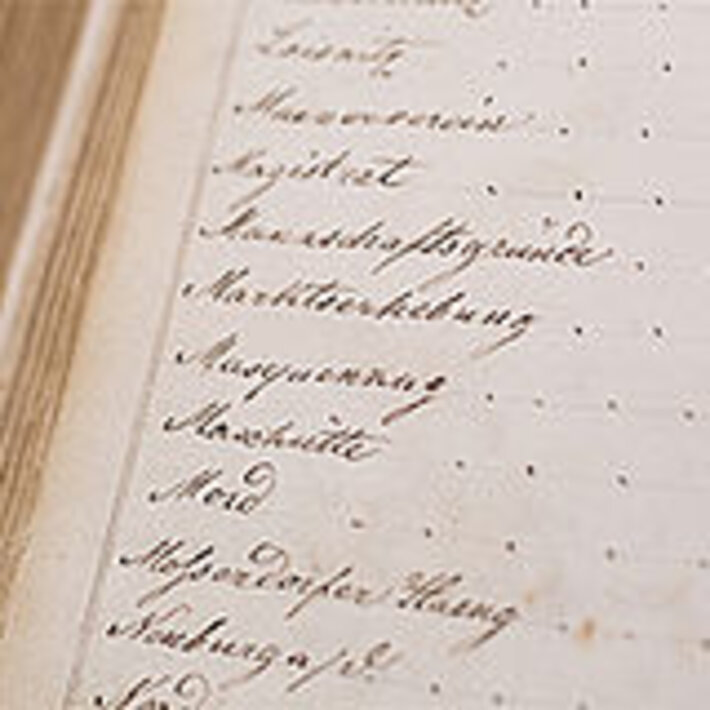 Loisnitz
Maenerverein
Magistrat
Mannschaftsgründe
Markterhebung
Maxhütte
Mord
Moſsendorfer Haeng
Neuburg a/d.
Nord